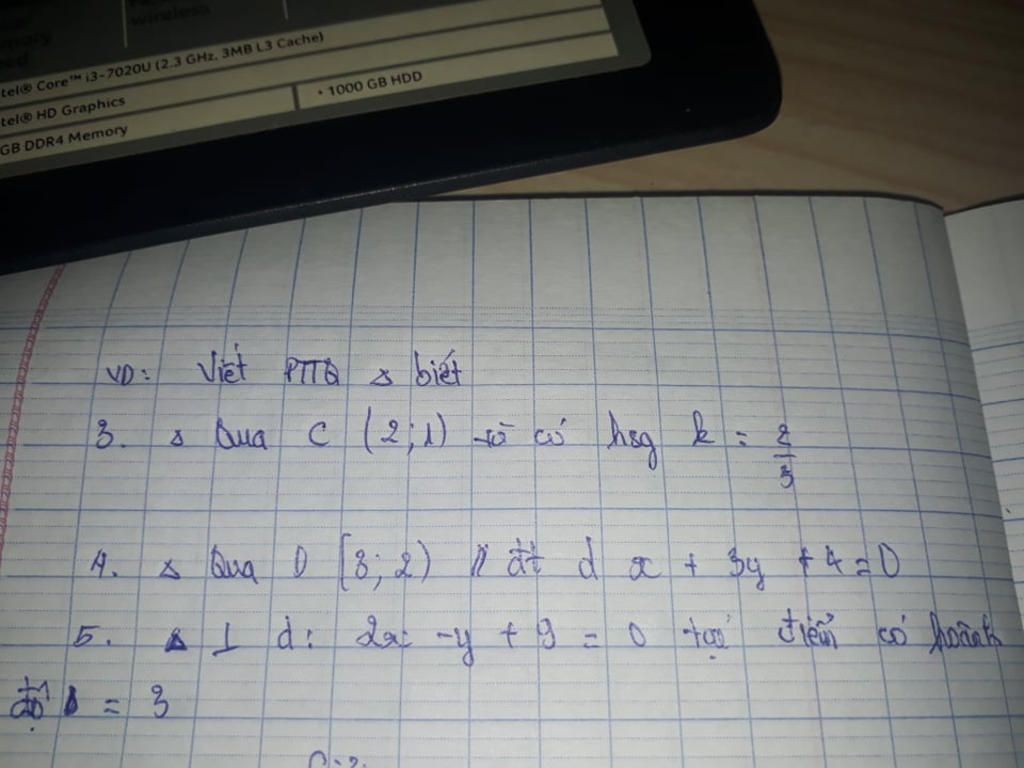 wireless
tel® Core™ i3-7020U (2.3 GHz, 3MB L3 Cache)
tel® HD Graphics
• 1000 GB HDD
GB DDR4 Memory
VD: Viết PTTQ Δ biết
3. Δ Qua C (2;1) và có hsg k = 2/3
4. Δ Qua D (3;2) // đt d x + 3y + 4 = 0
5. Δ ⊥ d: 2x - y + 9 = 0 tại điểm có hoành
độ = 3